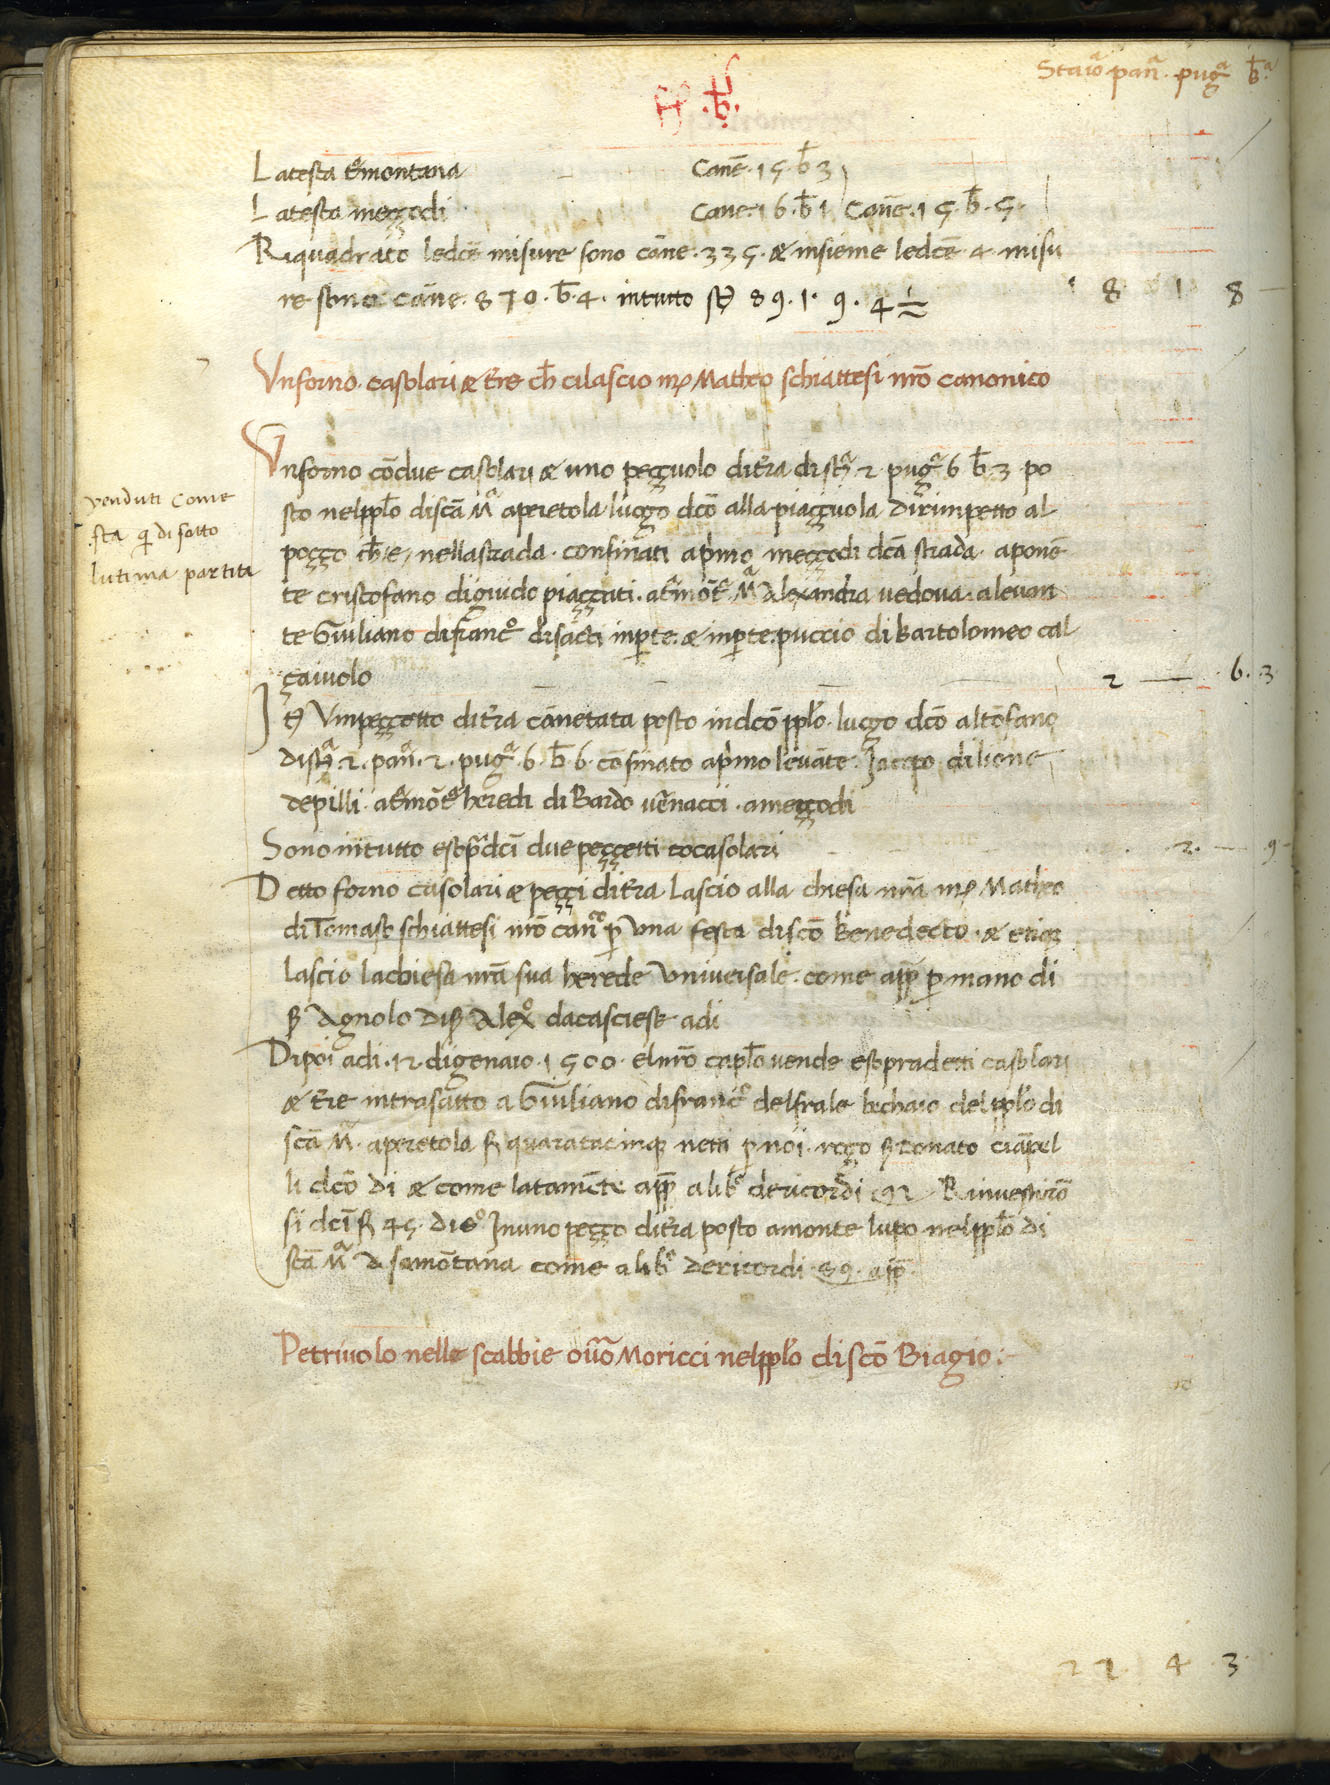 Staiọ panᵃ pugᵃ b̄ᵃ
La testa tͬmontana Canē · 15 · b̄ 3
La testa meççodi Cane · 16 · b̄ 1 Canē · 15 b̄ · 5 ·
Riquadrato ledcē misure sono cāne · 335 · & insieme ledcē 4 · misu
re sono cāne · 870 · b̄ · 4 · intutto st̄ 89 · 1 · 9 · 4 ½ 18 1 8
Vnforno casolari & t̄re ch̄ cilascio mͬ Matheo schiattesi nr̄o canonico
Vnforno cōdue casolari & uno peççuolo dit̄ra distᵃ 2 · pugᵃ 6 b̄ 3 · po
sto nelpp̄lo discā Mᵃ aperetola luogo dcō alla piaççuola dirimpetto al
poçço ch̄ e nellastrada · confinati apͥmo meççodi dcā strada · aponē
te cristofano diguido piaççati · atͬmōtᵉ Mᵃ alexandra uedova · aleuan
te Giuliano difrancº disacti inp̄te · & inp̄te · puccio di Bartolomeo cal
çaiuolo 2 — 6 · 3
It̄ Vnpeççetto dit̄ra cānetata posto indcō pp̄lo · luogo dcō altōfano
distᵃ 2 · panᵃ · 2 · pugᵃ · 6 · b̄ · 6 · cōfinato apͥmo leuāte · Jacopo dilione
depilli · atͬmōtᵉ heredi di Bardo uērnacci · ameççodi
Sono intutto esop̄dcī due peççetti cocasolari 2 · — 9
Detto forno casolari & peççi dit̄ra lascio alla chiesa nr̄a mͬ Matheo
di Tomaso schiattesi nr̄o canᶜᵒ p̄ una festa discō benedecto · & etiā
lascio lachiesa nr̄a sua herede vniuersale · come app̄ p̄ mano di
S̄ Agnolo dis̄ Alexº dacasciese adi
Dipoi adi · 12 · digenaio · 1500 · elnr̄o cap̄lo uende esopradetti casolari
& t̄re intrasatto a Giuliano difrancº delfrale bechaio delpp̄lo di
scā Mᵃ · aperetola fͥ quarātacinq̄ netti p̄ noi · rogo s̄ Donato ciāpel
li dcō di & come latamēte app̄ alibº dericordi Rinuestirō
si dcī fͥ 45 · Inuno peçço dit̄ra posto amonte lupo nelpp̄lo di
scā Mᵃ come alibº dericordi 49 · app̄ ·
venduti come
sta q̄ di sotto
lutima partita
Petriuolo nelle scabbie ouūo Moricci nelpp̄lo discō Biagio :
22 4 3